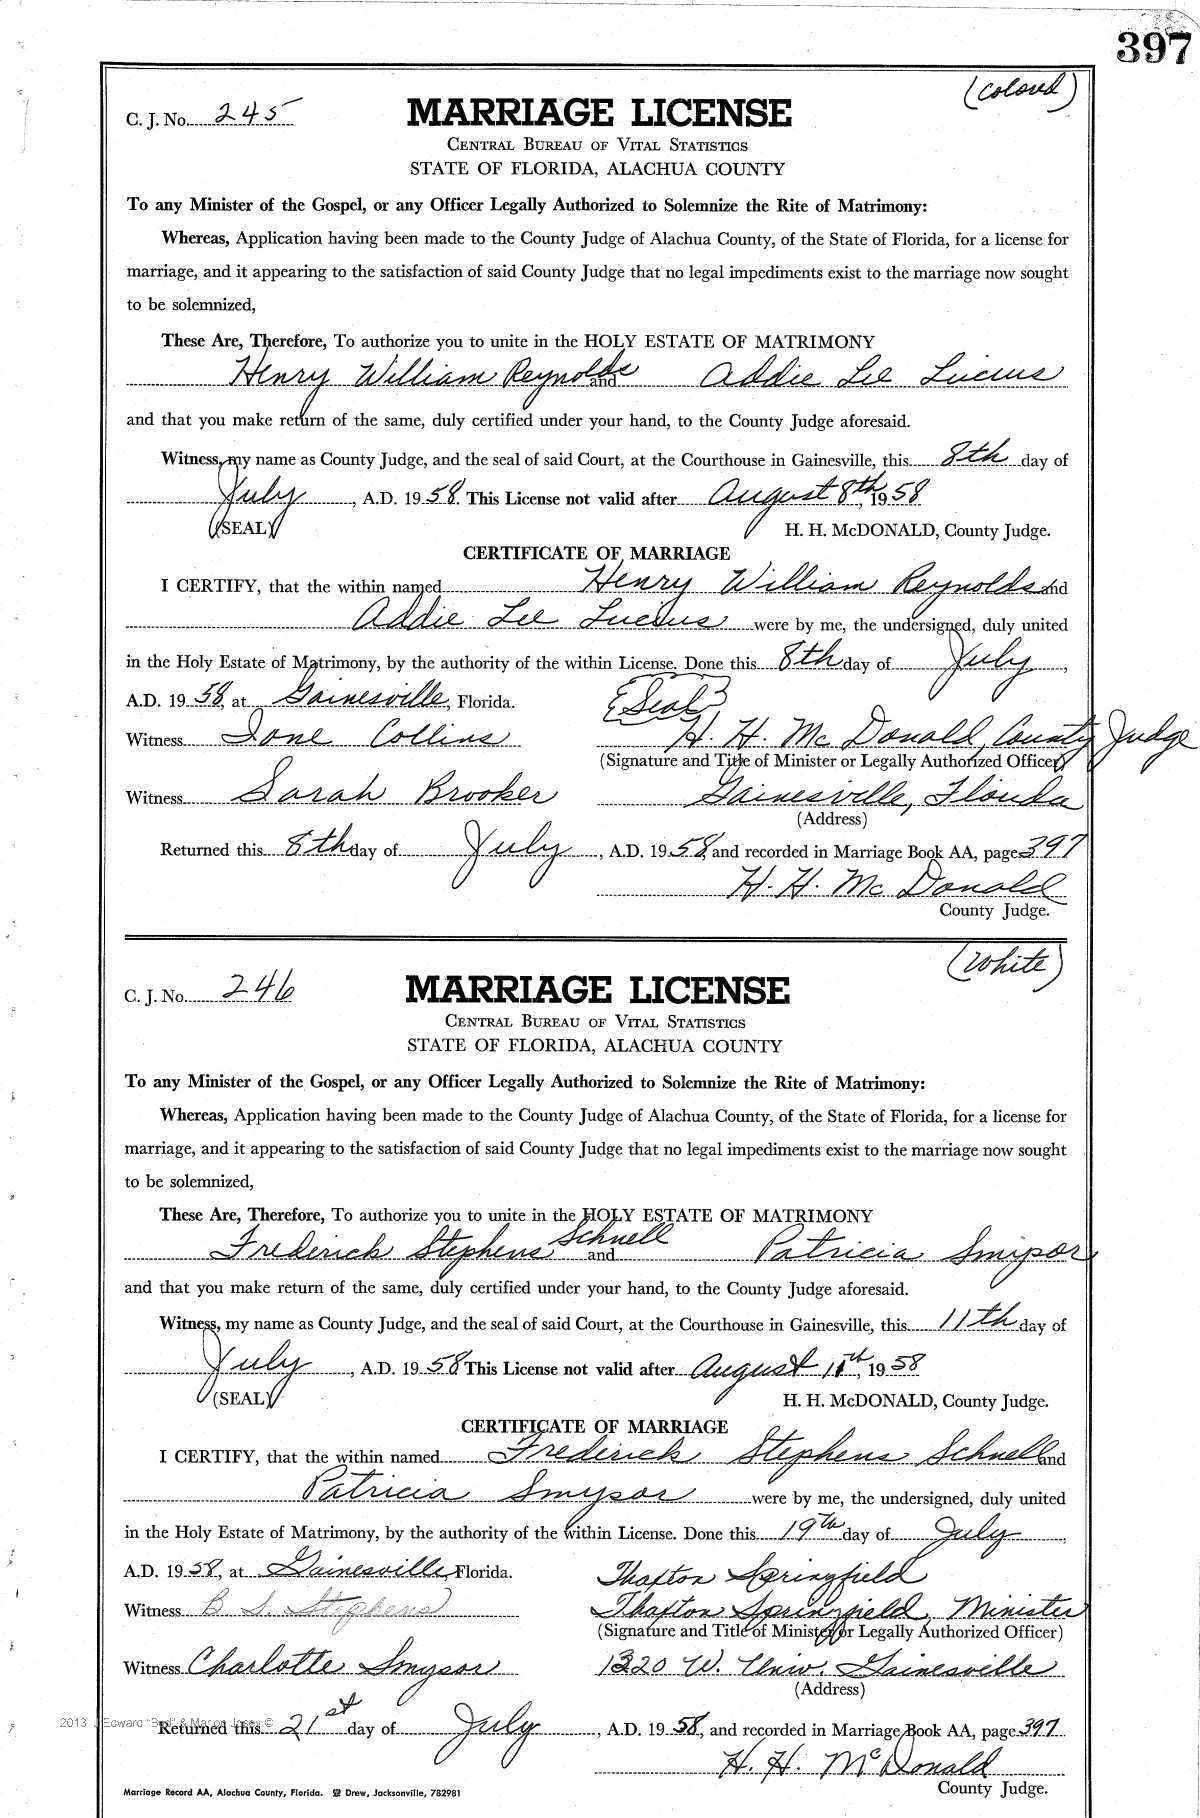 397
(colored)
C. J. No. 245
MARRIAGE LICENSE
CENTRAL BUREAU OF VITAL STATISTICS
STATE OF FLORIDA, ALACHUA COUNTY
To any Minister of the Gospel, or any Officer Legally Authorized to Solemnize the Rite of Matrimony:
Whereas, Application having been made to the County Judge of Alachua County, of the State of Florida, for a license for
marriage, and it appearing to the satisfaction of said County Judge that no legal impediments exist to the marriage now sought
to be solemnized,
These Are, Therefore, To authorize you to unite in the HOLY ESTATE OF MATRIMONY
Henry William Reynolds and Addie Lee Lucius
and that you make return of the same, duly certified under your hand, to the County Judge aforesaid.
Witness, my name as County Judge, and the seal of said Court, at the Courthouse in Gainesville, this 8th day of
July, A.D. 1958. This License not valid after August 8th, 1958
(SEAL) H. H. McDONALD, County Judge.
CERTIFICATE OF MARRIAGE
I CERTIFY, that the within named Henry William Reynolds and
Addie Lee Lucius were by me, the undersigned, duly united
in the Holy Estate of Matrimony, by the authority of the within License. Done this 8th day of July,
A.D. 1958, at Gainesville, Florida. (Seal)
Witness Ione Collins H. H. Mc Donald, County Judge
(Signature and Title of Minister or Legally Authorized Officer)
Witness Sarah Brooker Gainesville, Florida
(Address)
Returned this 8th day of July, A.D. 1958, and recorded in Marriage Book AA, page 397
H. H. Mc Donald
County Judge.
(White)
C. J. No. 246
MARRIAGE LICENSE
CENTRAL BUREAU OF VITAL STATISTICS
STATE OF FLORIDA, ALACHUA COUNTY
To any Minister of the Gospel, or any Officer Legally Authorized to Solemnize the Rite of Matrimony:
Whereas, Application having been made to the County Judge of Alachua County, of the State of Florida, for a license for
marriage, and it appearing to the satisfaction of said County Judge that no legal impediments exist to the marriage now sought
to be solemnized,
These Are, Therefore, To authorize you to unite in the HOLY ESTATE OF MATRIMONY
Frederick Stephens Schnell and Patricia Smysor
and that you make return of the same, duly certified under your hand, to the County Judge aforesaid.
Witness, my name as County Judge, and the seal of said Court, at the Courthouse in Gainesville, this 11th day of
July, A.D. 1958 This License not valid after August 11th, 1958
(SEAL) H. H. McDONALD, County Judge.
CERTIFICATE OF MARRIAGE
I CERTIFY, that the within named Frederick Stephens Schnell and
Patricia Smysor were by me, the undersigned, duly united
in the Holy Estate of Matrimony, by the authority of the within License. Done this 19th day of July,
A.D. 1958, at Gainesville, Florida. Thaxton Springfield
Witness B S. Stephens Thaxton Springfield, Minister
(Signature and Title of Minister or Legally Authorized Officer)
Witness Charlotte Smysor 1320 W. Univ. Gainesville
(Address)
Returned this 21st day of July, A.D. 1958, and recorded in Marriage Book AA, page 397
H. H. McDonald
County Judge.
Marriage Record AA, Alachua County, Florida. Drew, Jacksonville, 782981
2013 J Edward "Bud" & Marion ©